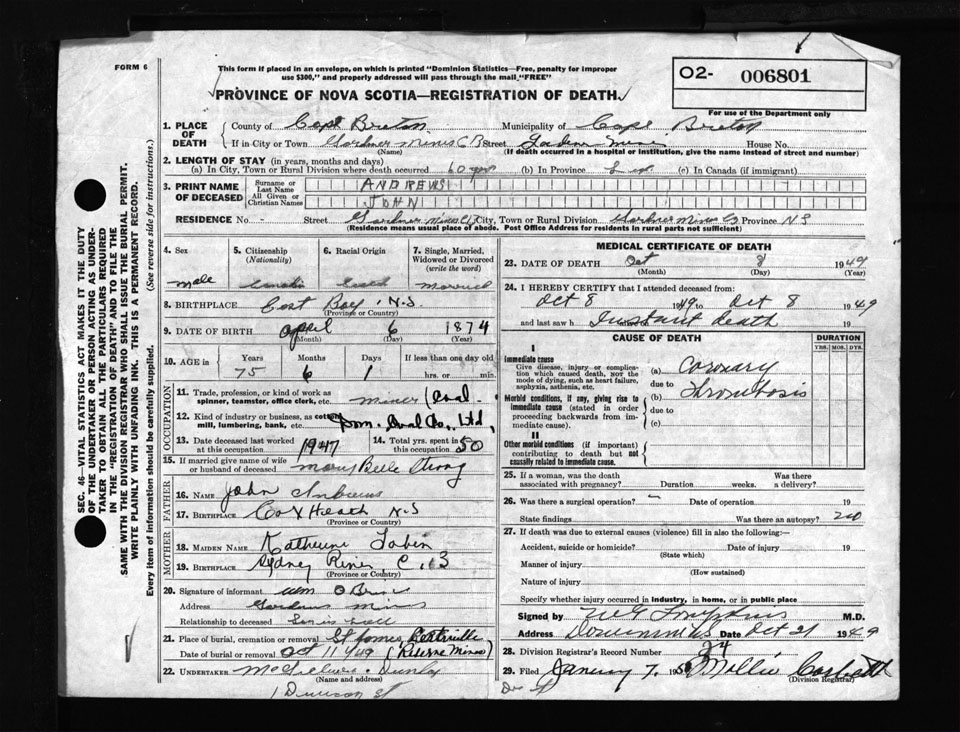 FORM 6
This form if placed in an envelope, on which is printed "Dominion Statistics—Free, penalty for improper
use $300," and properly addressed will pass through the mail "FREE"
O2- 006801
PROVINCE OF NOVA SCOTIA—REGISTRATION OF DEATH.
For use of the Department only
1. PLACE OF DEATH
County of Cape Breton Municipality of Cape Breton
If in City or Town Gardner Mines C B Street Gardner Mines House No.
(Name) (If death occurred in a hospital or institution, give the name instead of street and number)
2. LENGTH OF STAY (in years, months and days)
(a) In City, Town or Rural Division where death occurred 60 yrs (b) In Province Life (c) In Canada (if immigrant)
3. PRINT NAME OF DECEASED
Surname or Last Name ANDREWS
All Given or Christian Names JOHN
RESIDENCE No. - Street Gardner Mines CB City, Town or Rural Division Gardner Mines CB Province N S
(Residence means usual place of abode. Post Office Address for residents in rural parts not sufficient)
4. Sex
Male
5. Citizenship
(Nationality)
6. Racial Origin
7. Single, Married, Widowed or Divorced
(write the word)
Married
8. BIRTHPLACE East Bay, N.S
(Province or Country)
9. DATE OF BIRTH April 6 1874
(Month) (Day) (Year)
10. AGE in Years Months Days If less than one day old
75 6 1 hrs. or min.
OCCUPATION
11. Trade, profession, or kind of work as spinner, teamster, office clerk, etc. miner (Coal
12. Kind of industry or business, as cotton mill, lumbering, bank, etc. Dom. Coal Co., Ltd,
13. Date deceased last worked at this occupation 1947 14. Total yrs. spent in this occupation 50
15. If married give name of wife or husband of deceased Mary Belle
FATHER
16. NAME John Andrews
17. BIRTHPLACE Cox Heath N.S
(Province or Country)
MOTHER
18. MAIDEN NAME Katherine
19. BIRTHPLACE Sydney River, C.B
(Province or Country)
20. Signature of informant Wm O Brien
Address Gardner Mines
Relationship to deceased
21. Place of burial, cremation or removal St James
Date of burial or removal Oct 11/49 (Reserve Mines)
22. UNDERTAKER Dunlop
(Name and address)
MEDICAL CERTIFICATE OF DEATH
23. DATE OF DEATH Oct 8 1949
(Month) (Day) (Year)
24. I HEREBY CERTIFY that I attended deceased from:
Oct 8 1949 to Oct 8 1949
and last saw h Instant death 19
CAUSE OF DEATH
DURATION
YRS. MOS. DYS.
I
Immediate cause
Give disease, injury or complication which caused death, not the mode of dying, such as heart failure, asphyxia, asthenia, etc.
(a) Coronary
due to Thrombosis
Morbid conditions, if any, giving rise to immediate cause (stated in order proceeding backwards from immediate cause).
(b)
due to
(c)
II
Other morbid conditions (if important) contributing to death but not causally related to immediate cause.
25. If a woman, was the death associated with pregnancy? Duration weeks. Was there a delivery?
26. Was there a surgical operation? – Date of operation 19
State findings Was there an autopsy? no
27. If death was due to external causes (violence) fill in also the following:
Accident, suicide or homicide? Date of injury 19
(State which)
Manner of injury
(How sustained)
Nature of injury
Specify whether injury occurred in industry, in home, or in public place
Signed by M.D.
Address Date Oct 21 1949
28. Division Registrar's Record Number 24
29. Filed January 7, 195 Mollie Corbett
(Division Registrar)
SEC. 46—VITAL STATISTICS ACT MAKES IT THE DUTY
OF THE UNDERTAKER OR PERSON ACTING AS UNDERTAKER TO OBTAIN ALL THE PARTICULARS REQUIRED
IN THE "REGISTRATION OF DEATH" AND TO FILE THE
SAME WITH THE DIVISION REGISTRAR WHO SHALL ISSUE THE BURIAL PERMIT.
WRITE PLAINLY WITH UNFADING INK. THIS IS A PERMANENT RECORD.
Every item of information should be carefully supplied. (See reverse side for instructions.)